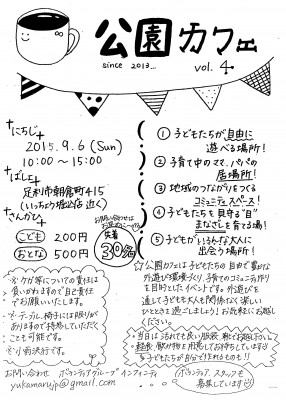 公園カフェ
since 2013...
vol. 4
にちじ
2015.9.6 (Sun)
10:00〜15:00
ばしょ
足利市朝倉町415
(いっちょう堀込店 近く)
さんかひ
こども 200円
おとな 500円
お問い合わせは
先着
30名
① 子どもたちが自由に
遊べる場所!
② 子育て中のママ、パパの
居場所!
③ 地域のつながりをつくる
コミュニティスペース!
④ 子どもたちを見守る"目"
まなざしを育てる場!
⑤ 子どもがいろんな大人に
出会う場所!
☆公園カフェは子どもたちの自由で豊かな
外遊び環境づくり、子育てのコミュニティ作り
を目的としたイベントです。外遊びを
通して子どもも大人も関係なく楽しい
ひとときを過ごしましょう! お気軽にお越し
ください。
※ケガ等についての責任は
負いかねますので自己責任
でお願いいたします。
※テーブル、椅子には限りが
ありますので持参していただく
ことも可能です。
※小雨決行です。
・当日は汚れても良い服装、靴でお越し下さい。
・軽食、飲み物を用意してお待ちしています
お問い合わせ ボランティアグループ インフィニティ
yukamarujp@gmail.com
(ボランティアスタッフも
募集しています)